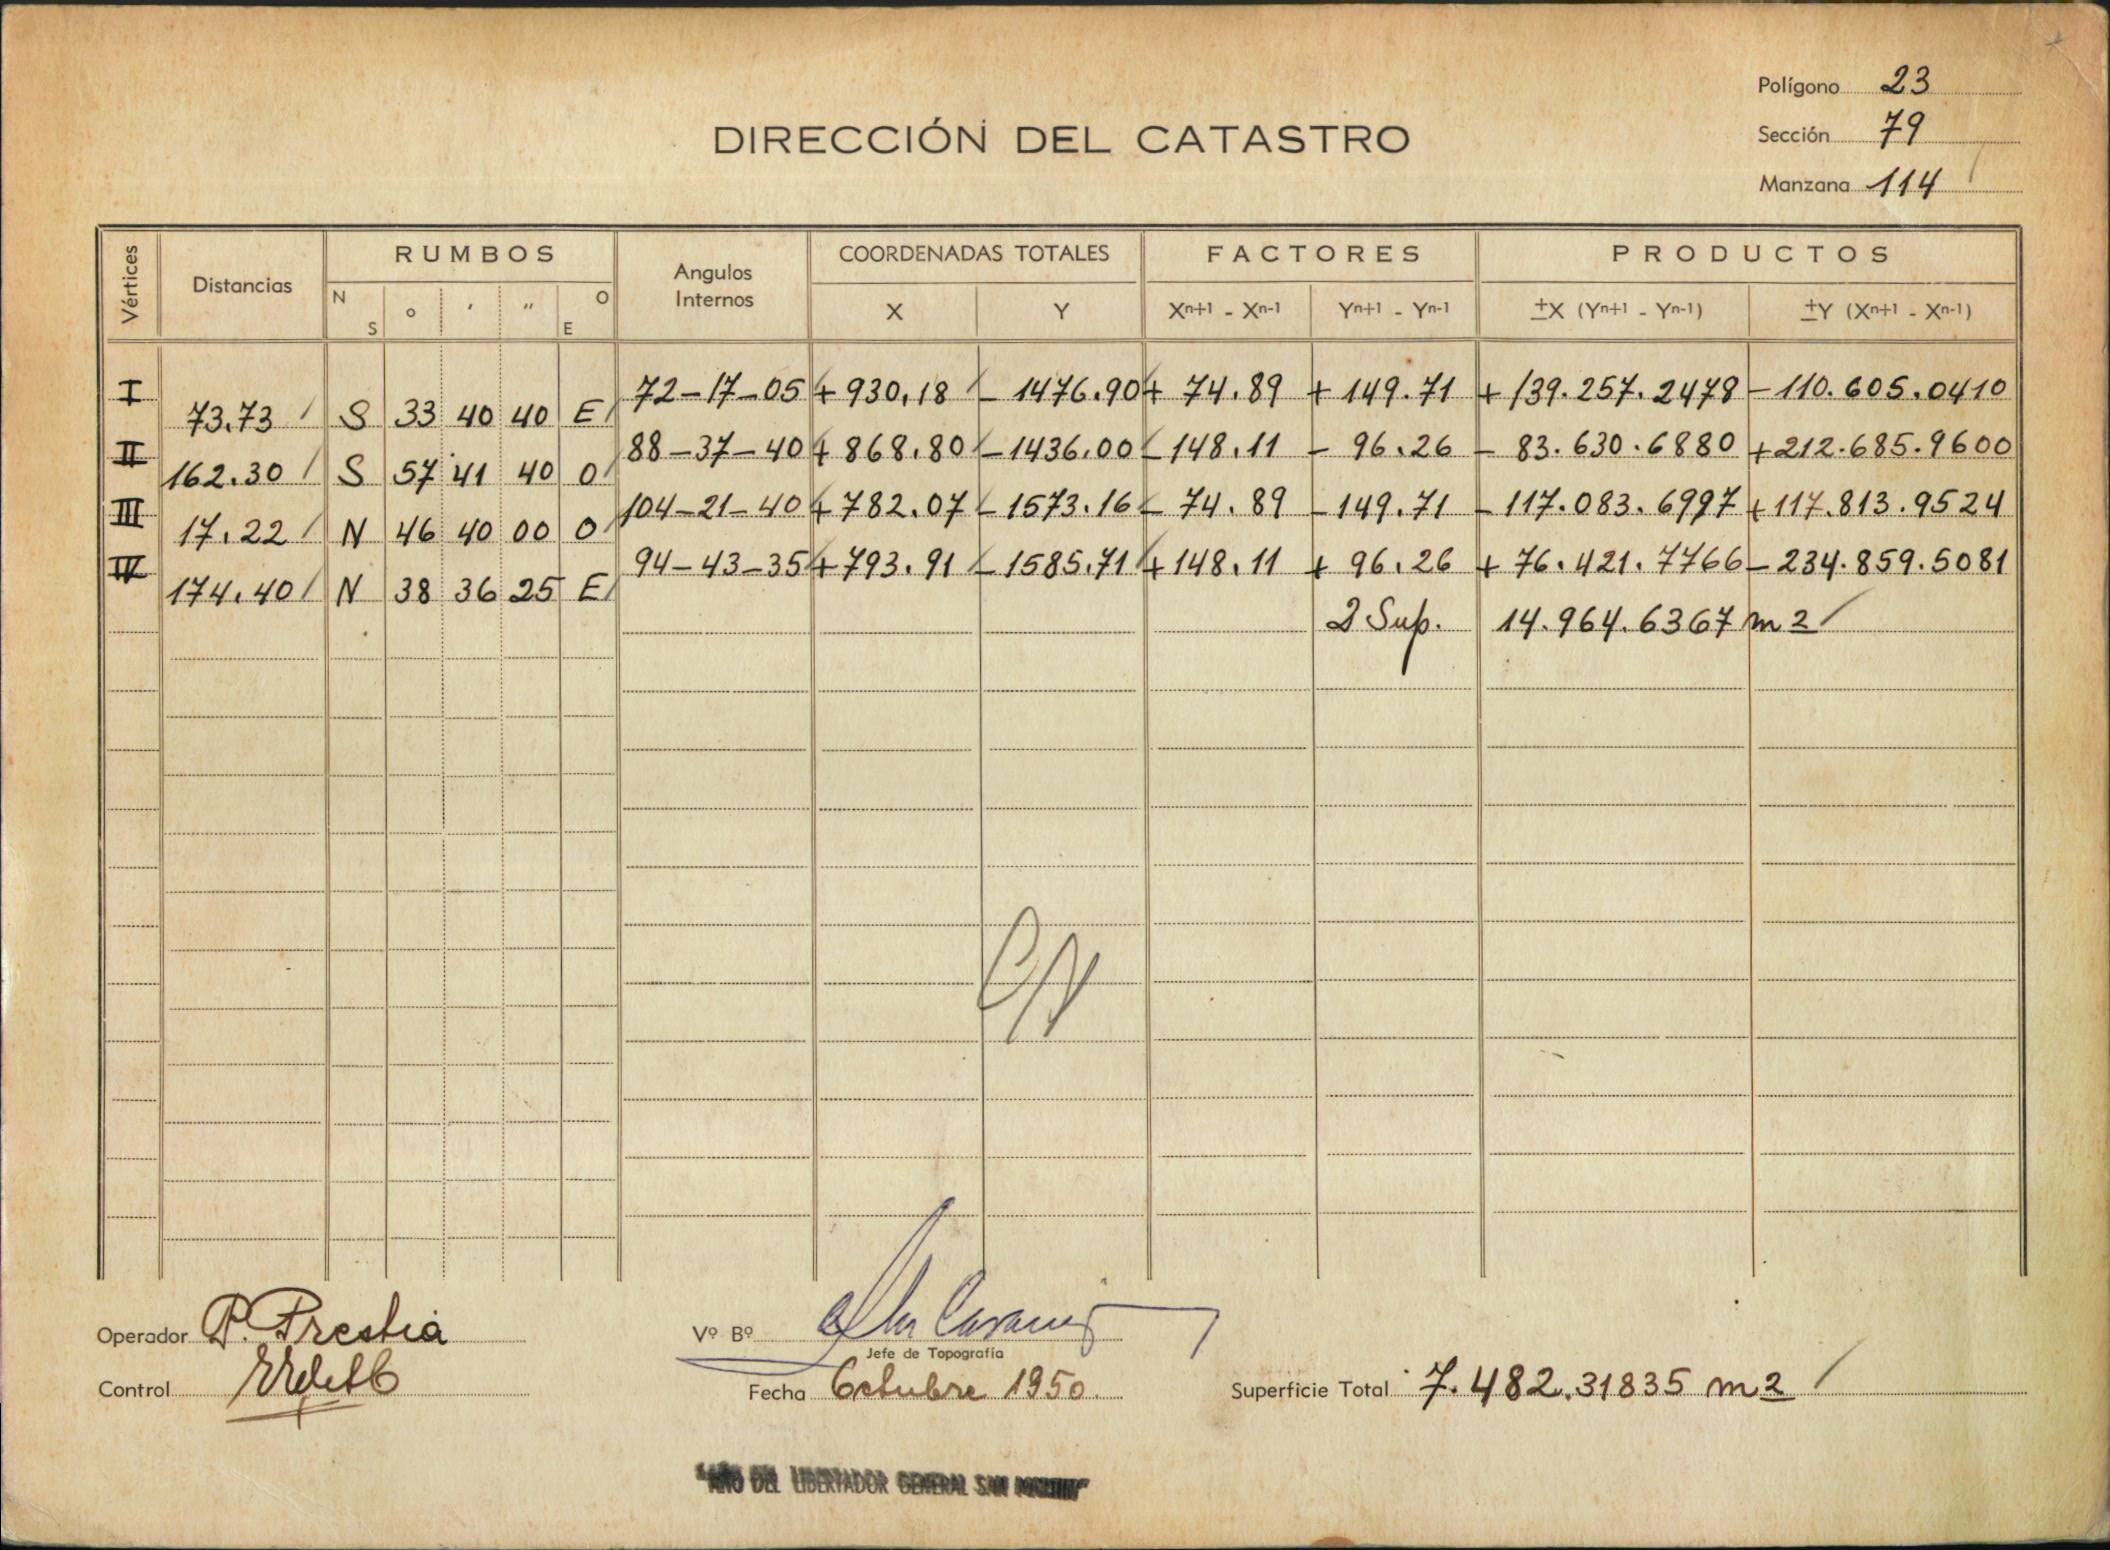 Polígono 23
DIRECCIÓN DEL CATASTRO
Sección 79
Manzana 114
Vértices Distancias RUMBOS Angulos Internos COORDENADAS TOTALES FACTORES PRODUCTOS
N S ° ′ ″ O E X Y Xn+1 - Xn-1 Yn+1 - Yn-1 ±X (Yn+1 - Yn-1) ±Y (Xn+1 - Xn-1)
I 72-17-05 +930,18 - 1476.90 + 74.89 + 149.71 + 139.257.2478 - 110.605.0410
73.73 S 33 40 40 E
II 88-37-40 + 868.80 - 1436.00 - 148.11 - 96.26 - 83.630.6880 + 212.685.9600
162.30 S 57 41 40 O
III 104-21-40 + 782.07 - 1573.16 - 74.89 - 149.71 - 117.083.6997 + 117.813.9524
17.22 N 46 40 00 O
IV 94-43-35 + 793.91 - 1585.71 + 148.11 + 96.26 + 76.421.7766 - 234.859.5081
174.40 N 38 36 25 E
2 Sup. 14.964.6367 m2
Operador P. Prestia
Vº Bº
Jefe de Topografía
Control
Fecha Octubre 1950.
Superficie Total 7.482.31835 m2
"AÑO DEL LIBERTADOR GENERAL SAN MARTIN"